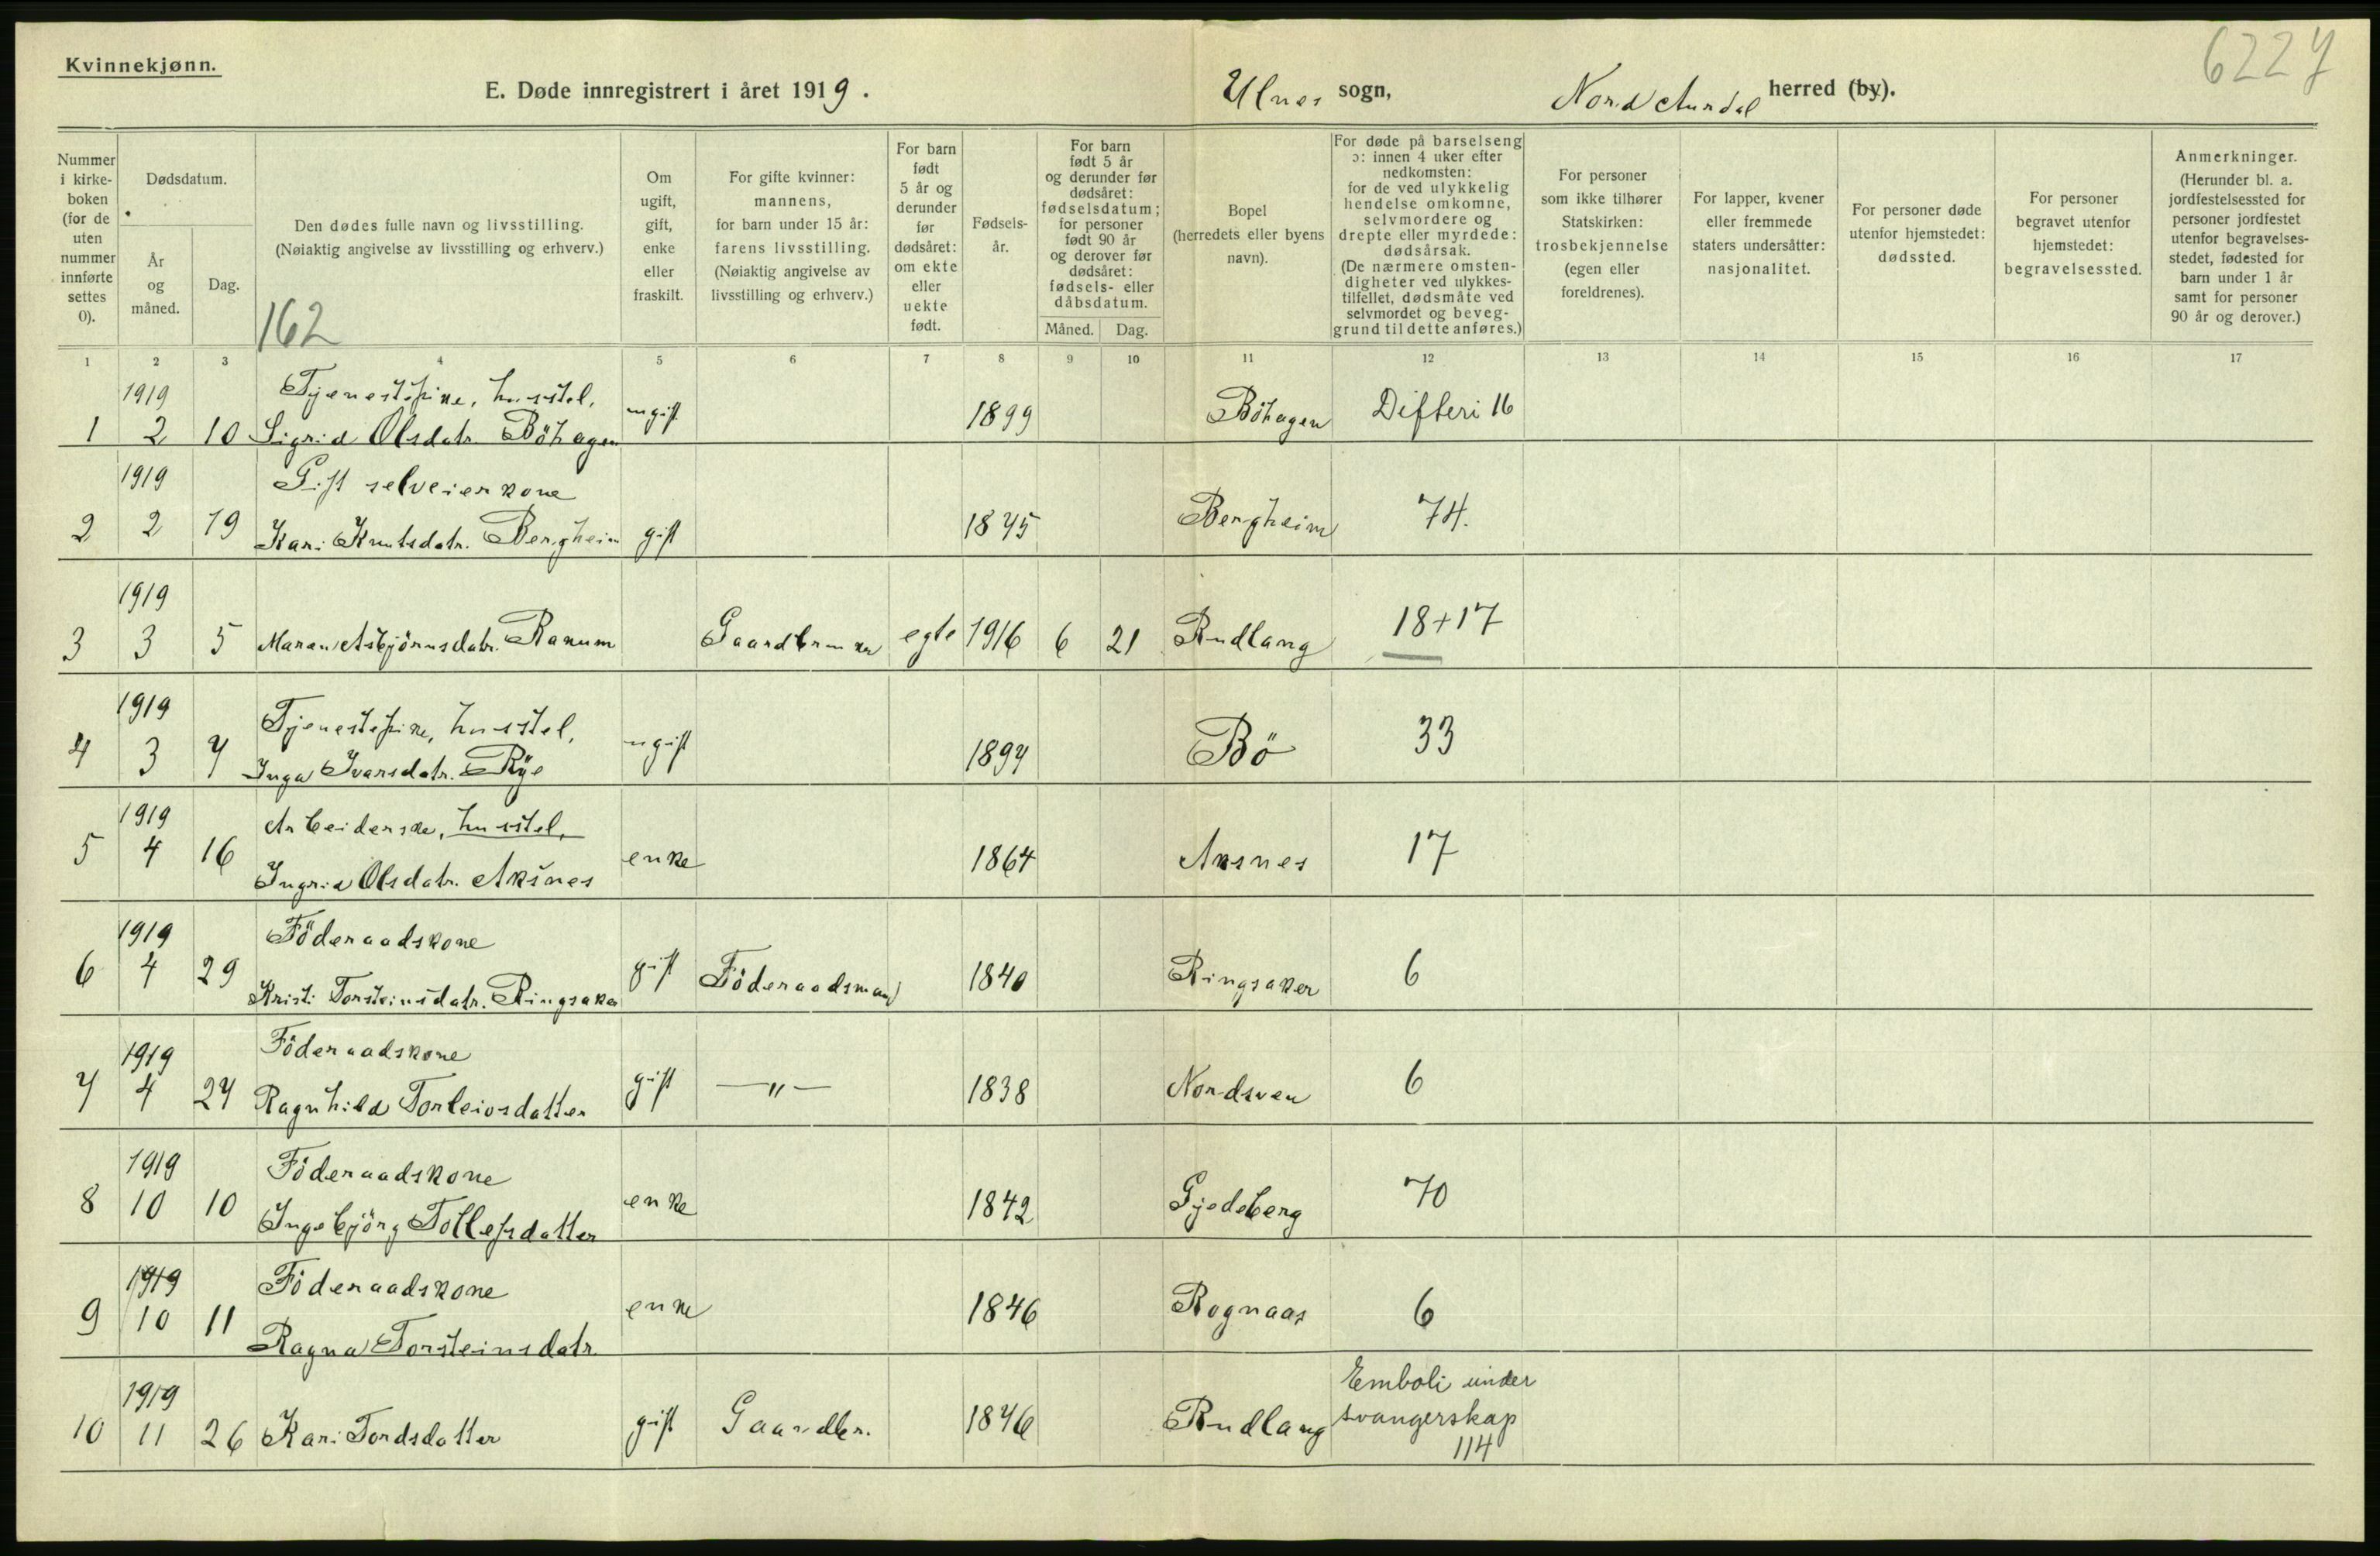 Kvinnekjønn.
6227
E. Døde innregistrert i året 1919. Ulnes sogn, Nord Aurdal herred (by).
Nummer i kirke-boken (for de uten nummer innførte settes 0).
Dødsdatum.
År og måned.
Dag.
Den dødes fulle navn og livsstilling.
(Nøiaktig angivelse av livsstilling og erhverv.)
162
Om ugift, gift, enke eller fraskilt.
For gifte kvinner: mannens, for barn under 15 år: farens livsstilling. (Nøiaktig angivelse av livsstilling og erhverv.)
For barn født 5 år og derunder før dødsåret: om ekte eller uekte født.
Fødsels-år.
For barn født 5 år og derunder før dødsåret: fødselsdatum; for personer født 90 år og derover før dødsåret: fødsels- eller dåbsdatum.
Måned. Dag.
Bopel (herredets eller byens navn).
For døde på barselseng ɔ: innen 4 uker efter nedkomsten: for de ved ulykkelig hendelse omkomne, selvmordere og drepte eller myrdede: dødsårsak. (De nærmere omsten-digheter ved ulykkes-tilfellet, dødsmåte ved selvmordet og beveg-grund til dette anføres.)
For personer som ikke tilhører Statskirken: trosbekjennelse (egen eller foreldrenes).
For lapper, kvener eller fremmede staters undersåtter: nasjonalitet.
For personer døde utenfor hjemstedet: dødssted.
For personer begravet utenfor hjemstedet: begravelsessted.
Anmerkninger. (Herunder bl. a. jordfestelsessted for personer jordfestet utenfor begravelses-stedet, fødested for barn under 1 år samt for personer 90 år og derover.)
1 2 3 4 5 6 7 8 9 10 11 12 13 14 15 16 17
1919 Tjenestepike, husstel,
1 2 10 Sigrid Olsdatr. Böhagen ugift 1899 Böhagen Difteri 16
1919 Gift selveierkone
2 2 19 Kari Knutsdatr. Bergheim gift 1845 Bergheim 74.
1919
3 3 5 Maran Asbjörnsdatr. Ranum Gaardbruker egte 1916 6 21 Rudlang 18+17
1919 Tjenestepike, husstel,
4 3 7 Inga Ivarsdatr. Rye ugift 1897 Bö 33
1919 Arbeiderske, husstel,
5 4 16 Ingrid Olsdatr. Aksnes enke 1864 Aksnes 17
1919 Föderaadskone
6 4 29 Kristi Torsteinsdatr. Ringsaker gift Föderaadsmand 1840 Ringsaker 6
1919 Föderaadskone
7 4 27 Ragnhild Torleivsdatter gift —"— 1838 Nordsven 6
1919 Föderaadskone
8 10 10 Ingebjörg Tollefsdatter enke 1842 Gjedeberg 70
1919 Föderaadskone
9 10 11 Ragna Torsteinsdatr. enke 1846 Rognaas 6
1919 Emboli under
10 11 26 Kari Tordsdatter gift Gaardbr. 1876 Rudlang svangerskap
114